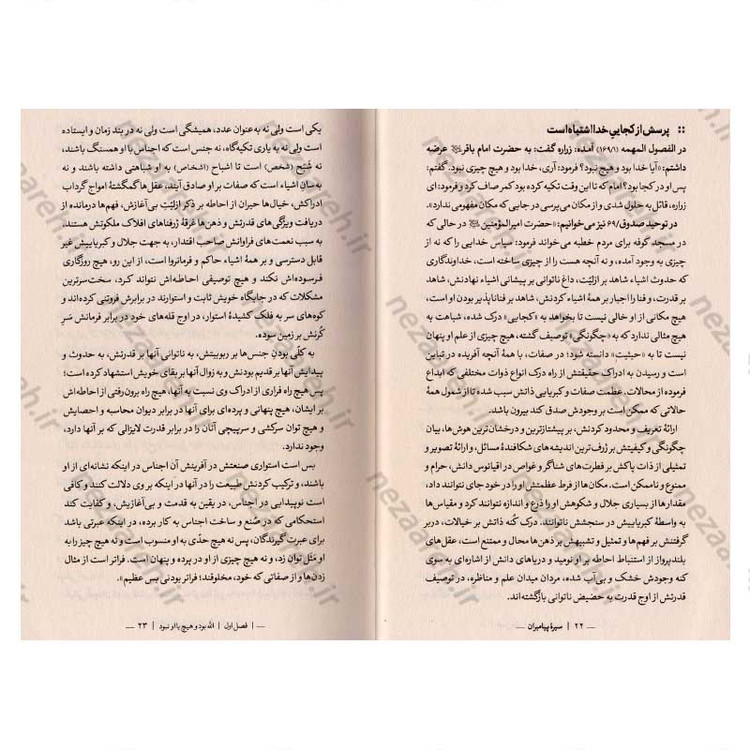 :: پرسش از کجایی خدا اشتباه است
در الفصول المهمه (۱۶۹/۱) آمده: زراره گفت: به حضرت امام باقر عرضه
داشتم: «آیا خدا بود و هیچ نبود؟ فرمود: آری، خدا بود و هیچ چیزی نبود. گفتم:
پس او در کجا بود؟ امام که تا این وقت تکیه کرده بود کمر صاف کرد و فرمود: ای
زراره، قائل به حلول شدی و از مکان می‌پرسی در جایی که مکان مفهومی ندارد».
در توحید صدوق/۶۹ نیز می‌خوانیم: «حضرت امیرالمؤمنین در
در مسجد کوفه برای مردم خطبه می‌خواند فرمود: سپاس خدایی را که نه از
چیزی به وجود آمده، و نه آنچه هست را از چیزی ساخته است، خداوندگاری
که حدوث اشیاء شاهد بر ازلیّت، داغ ناتوانی بر پیشانی اشیاء نهادنش، شاهد
بر قدرت، و فنا را اجبار بر همهٔ اشیاء کردنش، شاهد بر فناناپذیر بودن او است،
هیچ مکانی از او خالی نیست تا بخواهد به «کجایی» درک شود، شباهت به
هیچ مثالی ندارد که به «چگونگی» توصیف گشته، هیچ چیزی از علم او پنهان
نیست تا به «حیثیت» دانسته شود؛ در صفات، با همهٔ آنچه آفریده در تباین
است و رسیدن به ادراک حقیقتش از راه درک انواع ذوات مختلفی که ابداع
فرموده از محالات است. عظمت صفات و کبریایی ذاتش سبب شده تا از شمول همهٔ
حالاتی که ممکن است بر وجودش صدق کند بیرون باشد.
ارائهٔ تعریف و محدود کردنش، بر پیشتازترین و درخشان‌ترین هوش‌ها، بیان
چگونگی و کیفیتش بر ژرف‌ترین اندیشه‌های شکافندهٔ مسائل، و ارائهٔ تصویر و
تمثیلی از ذات پاکش بر فطرت‌های شناگر و غواص در اقیانوس دانش، حرام و
ممنوع و ناممکن است. مکان‌ها از فرط عظمتش او را در خود جای نتوانند داد،
مقدارها از بسیاری جلال و شکوهش او را ذرع و اندازه نتوانند کرد و مقیاس‌ها
به واسطهٔ کبریاییش در سنجشش ناتوانند. درک کُنه ذاتش بر خیالات، دربر
گرفتنش بر فهم‌ها و تمثیل و تشبیهش بر ذهن‌ها محال و ممتنع است، عقل‌های
بلندپرواز از استنباط احاطه بر او نومید و دریاهای دانش از اشاره‌ای به سوی
کنه وجودش خشک و بی‌آب شده، مردان میدان علم و مناظره، در توصیف
قدرتش از اوج قدرت به حضیض ناتوانی بازگشته‌اند.
۲۲ | سیرهٔ پیامبران
یکی است ولی نه به عنوان عدد، همیشگی است ولی نه در بند زمان و ایستاده
است ولی نه به یاری تکیه‌گاه، نه جنس است که اجناس با او همسنگ باشند،
نه شَبَح (شخص) است تا اشباح (اشخاص) به او شباهتی داشته باشند و نه
به سان اشیاء است که صفات بر او صادق آیند. عقل‌ها گمگشتهٔ امواج گرداب
ادراکش، خیال‌ها حیران از احاطه بر ذکر ازلیّت بی‌آغازش، فهم‌ها درمانده از
دریافت ویژگی‌های قدرتش و ذهن‌ها غرقهٔ ژرفناهای افلاک ملکوتش هستند.
به سبب نعمت‌های فراوانش صاحب اقتدار، به جهت جلال و کبریاییش غیر
قابل دسترسی و بر همهٔ اشیاء حاکم و فرمانروا است، از این رو، هیچ روزگاری
فرسوده‌اش نکند و هیچ توصیفی احاطه‌اش نتواند کرد. سخت‌سرترین
مشکلات که در جایگاه خویش ثابت و استوارند در برابرش فروتنی کرده‌اند و
کوه‌های سر به فلک کشیدهٔ استوار، در اوج قله‌های خود در برابر فرمانش سَرِ
کُرنش بر زمین سوده.
به کلّی بودن جنس‌ها بر ربوبیتش، به ناتوانی آنها بر قدرتش، به حدوث و
پیدایش آنها بر قدیم بودنش و به زوال آنها بر بقای خویش استشهاد کرده است؛
پس هیچ راه فراری از ادراک وی نسبت به آنها، هیچ راه برون‌رفتی از احاطه‌اش
بر ایشان، هیچ پنهانی و پرده‌ای برای آنها در برابر دیوان محاسبه و احصایش
و هیچ توان سرکشی و سرپیچی آنان را در برابر قدرت لایزالی که بر آنها دارد،
وجود ندارد.
بس است استواری صنعتش در آفرینش آن اجناس در اینکه نشانه‌ای از او
باشند، و ترکیب کردنش طبیعت را در آنها در اینکه بر وی دلالت کنند و کافی
است نوپیدایی در اجناس، در یقین به قدمت و بی‌آغازیش، و کفایت کند
استحکامی که در صُنع و ساخت اجناس به کار برده، در اینکه عبرتی باشد
برای عبرت گیرندگان، پس نه هیچ حدّی به او منسوب است و نه هیچ چیز را به
او مَثَل توان زد، و نه هیچ چیزی از او در پرده و پنهان است. فراتر است از مثال
زدن‌ها و از صفاتی که خود، مخلوقند؛ فراتر بودنی بس عظیم».
فصل اول | الله بود و هیچ با او نبود | ۲۳
nezaareh.ir